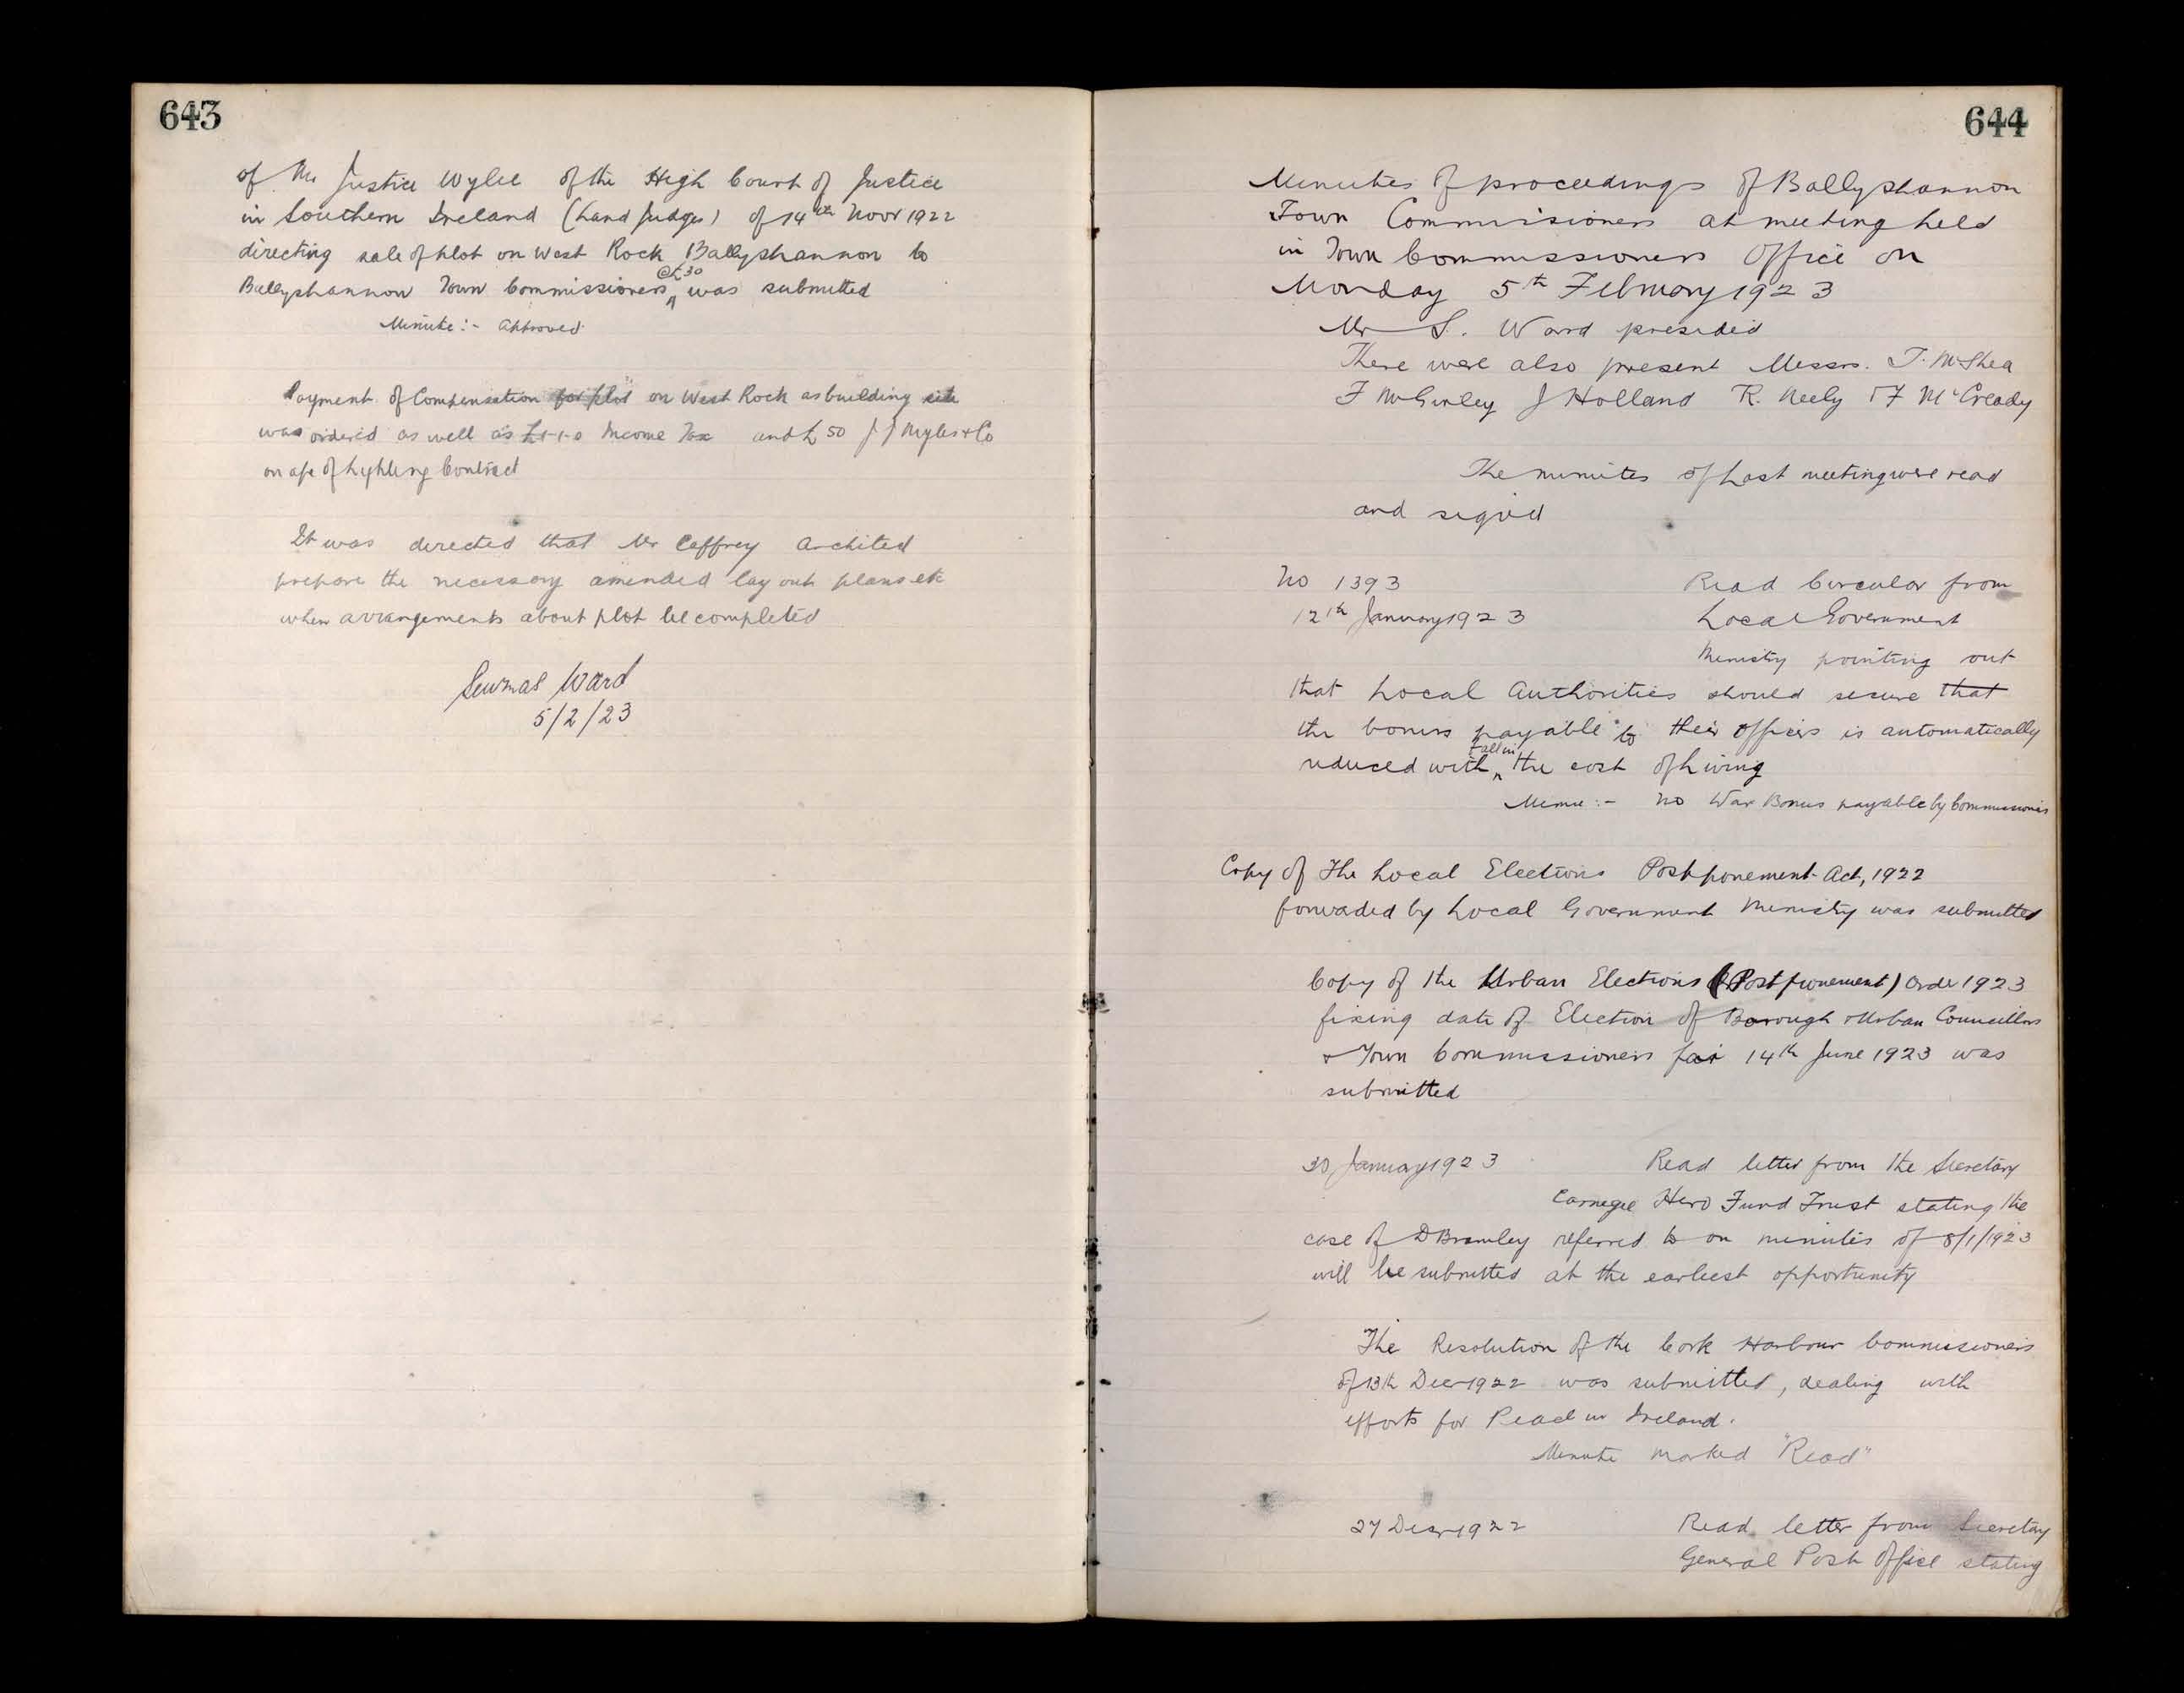 643
of Mr Justice Wylie of the High Court of Justice
in Southern Ireland (Land Judges) of 14th Novr 1922
directing sale of plot on West Rock Ballyshannon to
@£30
Ballyshannon Town Commissioners was submitted
Minute:- Approved
Payment of Compensation for plot on West Rock as building site
was ordered as well as £1-1-0 Income Tax and £50 J J Myles & Co
on a/c of Lighting Contract
It was directed that Mr Caffrey Architect
prepare the necessary amended lay out plans etc
when arrangements about plot be completed
Seumas Ward
5/2/23
644
Minutes of proceedings of Ballyshannon
Town Commissioners at meeting held
in Town Commissioners Office on
Monday 5th February 1923
Mr S. Ward presided
There were also present Messrs. T. McShea
F McGinley J Holland R. Neely & F McCready
The minutes of Last meeting were read
and signed
No 1393 Read Circular from
12th January 1923 Local Government
Ministry pointing out
that Local Authorities should secure that
the bonus payable to their officers is automatically
Fall in
reduced with the cost of Living
Minue:- No War Bonus payable by Commissioners
Copy of The Local Elections Postponement Act, 1922
forwaded by Local Government Ministry was submitted
Copy of the Urban Elections (Postponement) Order 1923
fixing date of Election of Borough & Urban Councillors
& Town Commissioners for 14th June 1923 was
submitted
30 January 1923 Read letter from the Secretary
Carnegie Hero Fund Trust stating the
case of D Bromley referred to on minutes of 8/1/1923
will be submitted at the earliest opportunity
The Resolution of the Cork Harbour Commissioners
of 13th Decr 1922 was submitted, dealing with
efforts for Peace in Ireland.
Minute marked "Read"
27 Decr 1922 Read letter from Secretary
General Post Office stating